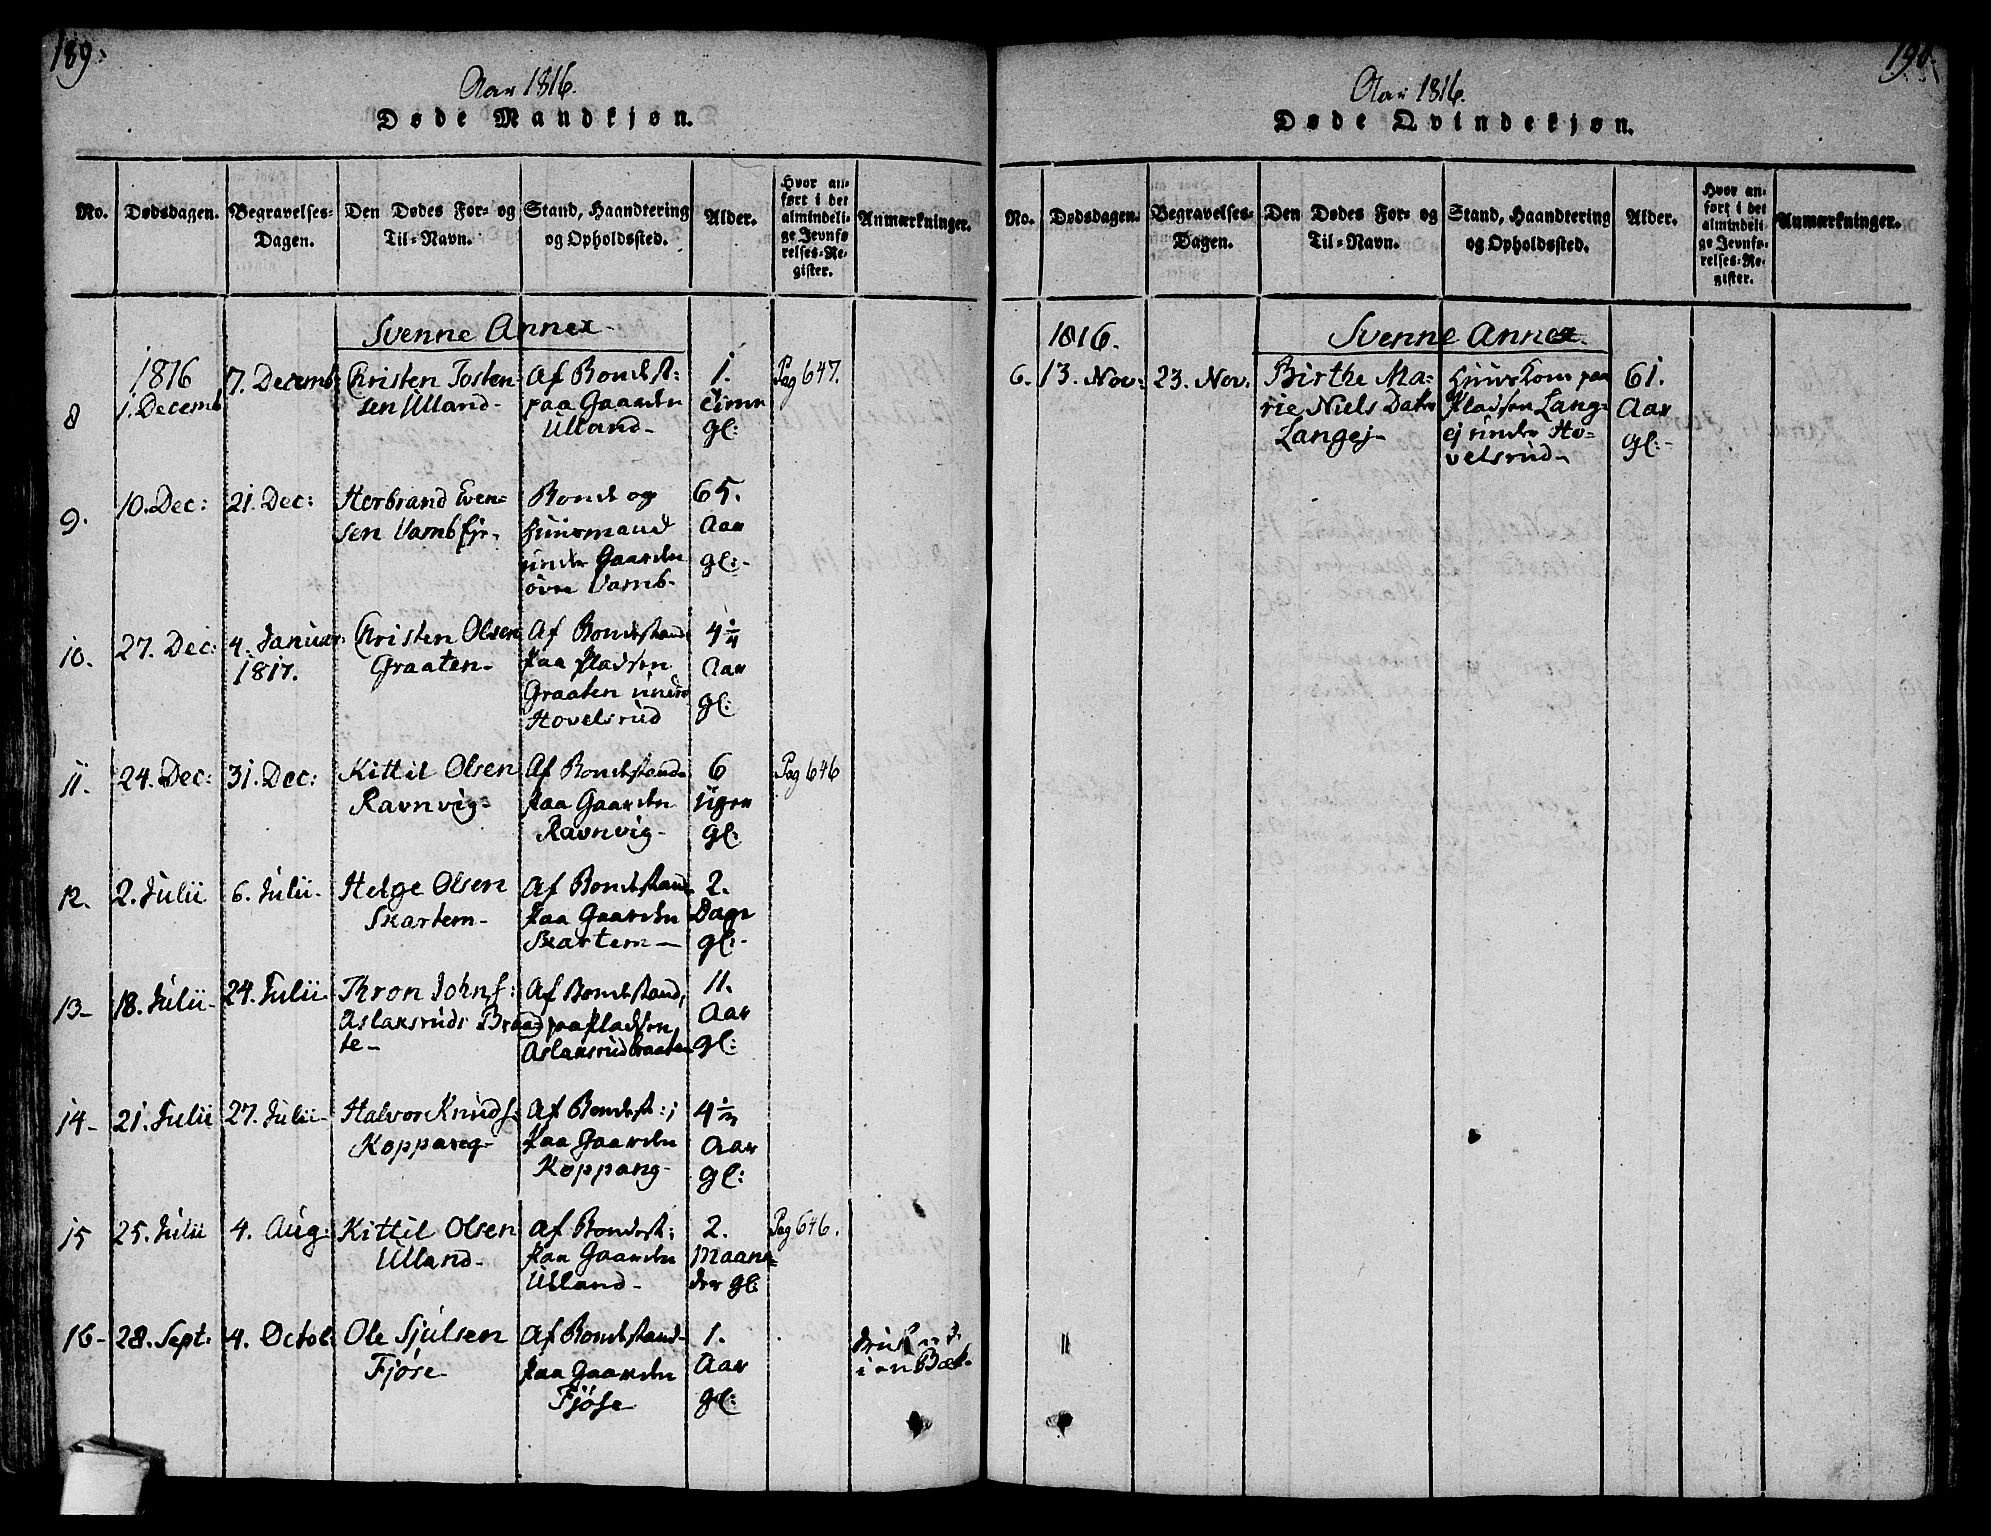 189.
Aar 1816.
Døde Mandkjøn.
No. Dødsdagen. Begravelses-Dagen. Den Dødes For- og Til-Navn. Stand, Haandtering og Opholdssted. Alder. Hvor anført i det almindelige Jevnførelses-Register. Anmærkninger.
Svenne Annex.
8 1816 1. Decemb 7. Decemb: Christen Tosten-
sen Ulland- Af Bondest:
paa Gaarden
Ulland- 1.
gl: Pag 647.
9. 10. Dec: 21. Dec: Herbrand Even=
sen Vambfjr- Bonde og
Huusmand
under Gaarden
øvre Vamb- 65.
Aar
gl:-
10. 27. Dec: 4. Januar:
1817. Christen Olsen
Graaten- Af Bondestand
paa Pladsen
Graaten under
Hovelsrud 4¼
Aar
gl:
11. 24. Dec: 31. Dec: Kittil Olsen
Ravnvig- Af Bondestand
paa Gaarden
Ravnvig- 6
Uger
gl: Pag 646
12. 2. Julii 6. Julii- Helge Olsen
Skartem- Af Bondestand
paa Gaarden
Skartem- 2.
Dage
gl:-
13- 18. Julii- 24. Julii Thron Johns:
Aslaksruds Braa=
te- Af Bondestand,
paa Pladsen
Aslaksrudbraaten 11.
Aar
gl:
14- 21. Julii 27. Julii- Halvor Knuds:
Koppang- Af Bondest:;
paa Gaarden
Koppang- 4½
Aar
gl:
15 25. Julii 4. Aug: Kittil Olsen
Ulland- Af Bondest:
paa Gaarden
Ulland- 2.
Maane=
der gl: Pag 646.
16- 28. Sept: 4. Octob: Ole Sjulsen
Fjøse- Af Bondestand-
paa Gaarden
Fjøse- 1.
Aar
gl:
i en Bæk-
190.
Aar 1816.
Døde Qvindekjøn.
No. Dødsdagen. Begravelses-Dagen. Den Dødes For- og Til-Navn. Stand, Haandtering og Opholdssted. Alder. Hvor anført i det almindelige Jevnførelses-Register. Anmærkninger.
1816. Svenne Annex.
6. 13. Nov: 23. Nov. Birthe Ma=
rie Niels Datr
Langej- Huuskone paa
Pladsen Lang=
ej under Ho=
velsrud- 61.
Aar
gl:-